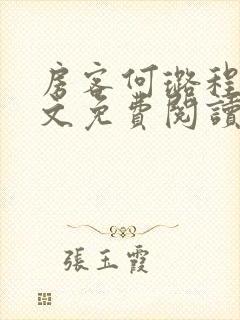 房客何璐程
文免費閱讀
張玉霞